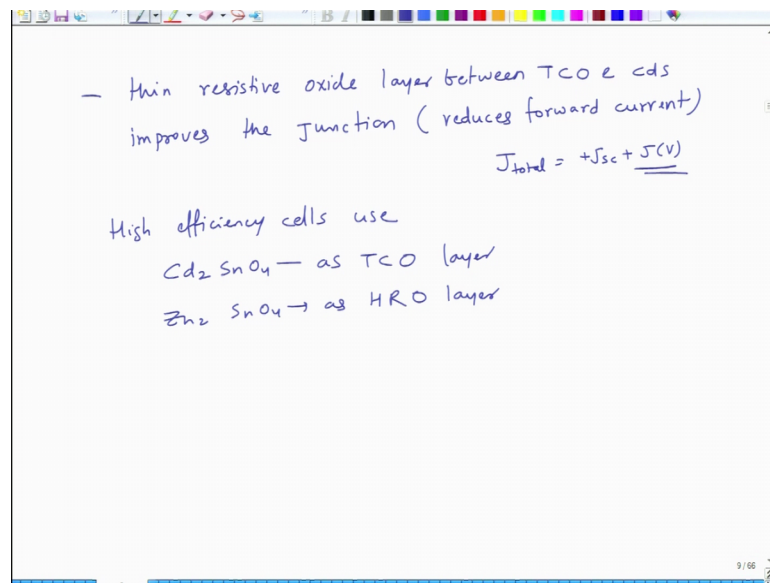 — thin resistive oxide layer between TCO e cds
improves the Junction ( reduces forward current)
J total = +Jsc + J(V)
High efficiency cells use
Cd2 SnO4 — as TCO layer
Zn2 SnO4 → as HRO layer
9 / 66